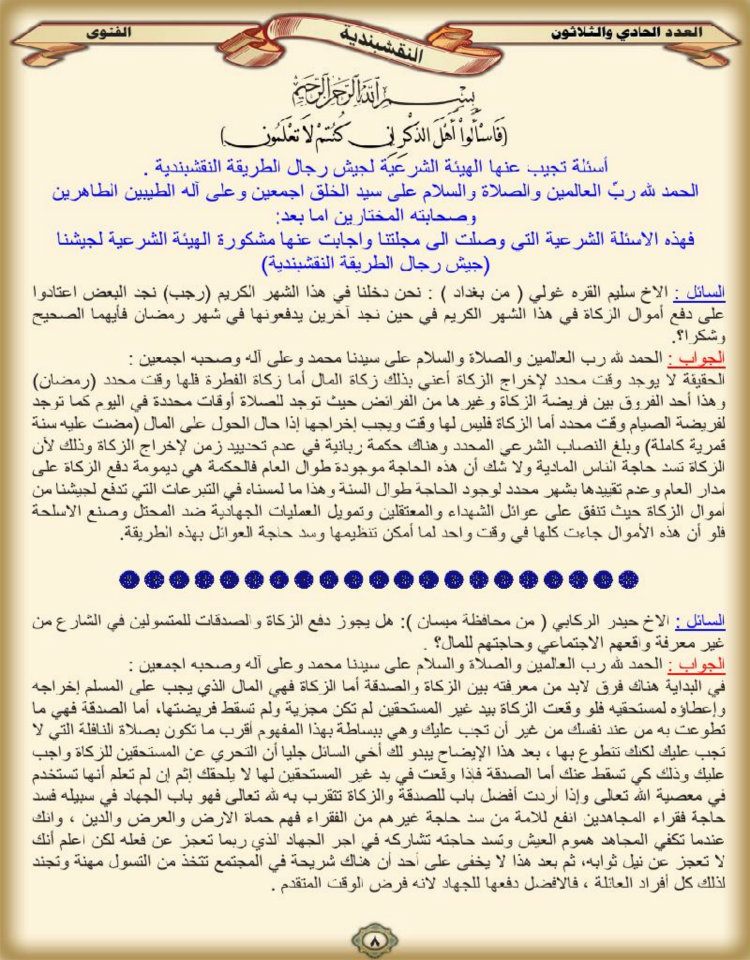 العدد الحادي والثلاثون
النقشبندية
الفتوى
بسم الله الرحمن الرحيم
(فَاسْأَلُوا أَهْلَ الذِّكْرِ إِن كُنتُمْ لَا تَعْلَمُونَ)
أسئلة تجيب عنها الهيئة الشرعية لجيش رجال الطريقة النقشبندية .
الحمد لله ربّ العالمين والصلاة والسلام على سيد الخلق اجمعين وعلى آله الطيبين الطاهرين
وصحابته المختارين اما بعد:
فهذه الاسئلة الشرعية التي وصلت الى مجلتنا واجابت عنها مشكورة الهيئة الشرعية لجيشنا
(جيش رجال الطريقة النقشبندية)
السائل : الاخ سليم القره غولي ( من بغداد ) : نحن دخلنا في هذا الشهر الكريم (رجب) نجد البعض اعتادوا
على دفع أموال الزكاة في هذا الشهر الكريم في حين نجد آخرين يدفعونها في شهر رمضان فأيهما الصحيح
وشكرا؟.
الجواب : الحمد لله رب العالمين والصلاة والسلام على سيدنا محمد وعلى آله وصحبه اجمعين :
الحقيقة لا يوجد وقت محدد لإخراج الزكاة أعني بذلك زكاة المال أما زكاة الفطرة فلها وقت محدد (رمضان)
وهذا أحد الفروق بين فريضة الزكاة وغيرها من الفرائض حيث توجد للصلاة أوقات محددة في اليوم كما توجد
لفريضة الصيام وقت محدد أما الزكاة فليس لها وقت ويجب إخراجها إذا حال الحول على المال (مضت عليه سنة
قمرية كاملة) وبلغ النصاب الشرعي المحدد وهناك حكمة ربانية في عدم تحدييد زمن لإخراج الزكاة وذلك لأن
الزكاة تسد حاجة الناس المادية ولا شك أن هذه الحاجة موجودة طوال العام فالحكمة هي ديمومة دفع الزكاة على
مدار العام وعدم تقييدها بشهر محدد لوجود الحاجة طوال السنة وهذا ما لمسناه في التبرعات التي تدفع لجيشنا من
أموال الزكاة حيث تنفق على عوائل الشهداء والمعتقلين وتمويل العمليات الجهادية ضد المحتل وصنع الاسلحة
فلو أن هذه الأموال جاءت كلها في وقت واحد لما أمكن تنظيمها وسد حاجة العوائل بهذه الطريقة.
السائل : الاخ حيدر الركابي ( من محافظة ميسان ): هل يجوز دفع الزكاة والصدقات للمتسولين في الشارع من
غير معرفة واقعهم الاجتماعي وحاجتهم للمال؟ .
الجواب : الحمد لله رب العالمين والصلاة والسلام على سيدنا محمد وعلى آله وصحبه اجمعين :
في البداية هناك فرق لابد من معرفته بين الزكاة والصدقة أما الزكاة فهي المال الذي يجب على المسلم إخراجه
وإعطاؤه لمستحقيه فلو وقعت الزكاة بيد غير المستحقين لم تكن مجزية ولم تسقط فريضتها، أما الصدقة فهي ما
تطوعت به من عند نفسك من غير أن تجب عليك وهي ببساطة بهذا المفهوم أقرب ما تكون بصلاة النافلة التي لا
تجب عليك لكنك تتطوع بها ، بعد هذا الإيضاح يبدو لك أخي السائل جليا أن التحري عن المستحقين للزكاة واجب
عليك وذلك كي تسقط عنك أما الصدقة فإذا وقعت في يد غير المستحقين لها لا يلحقك إثم إن لم تعلم أنها تستخدم
في معصية الله تعالى وإذا أردت أفضل باب للصدقة والزكاة تتقرب به لله تعالى فهو باب الجهاد في سبيله فسد
حاجة فقراء المجاهدين انفع للامة من سد حاجة غيرهم من الفقراء فهم حماة الارض والعرض والدين ، وانك
عندما تكفي المجاهد هموم العيش وتسد حاجته تشاركه في اجر الجهاد الذي ربما تعجز عن فعله لكن اعلم أنك
لا تعجز عن نيل ثوابه، ثم بعد هذا لا يخفى على أحد أن هناك شريحة في المجتمع تتخذ من التسول مهنة وتجند
لذلك كل أفراد العائلة ، فالافضل دفعها للجهاد لانه فرض الوقت المتقدم .
٨